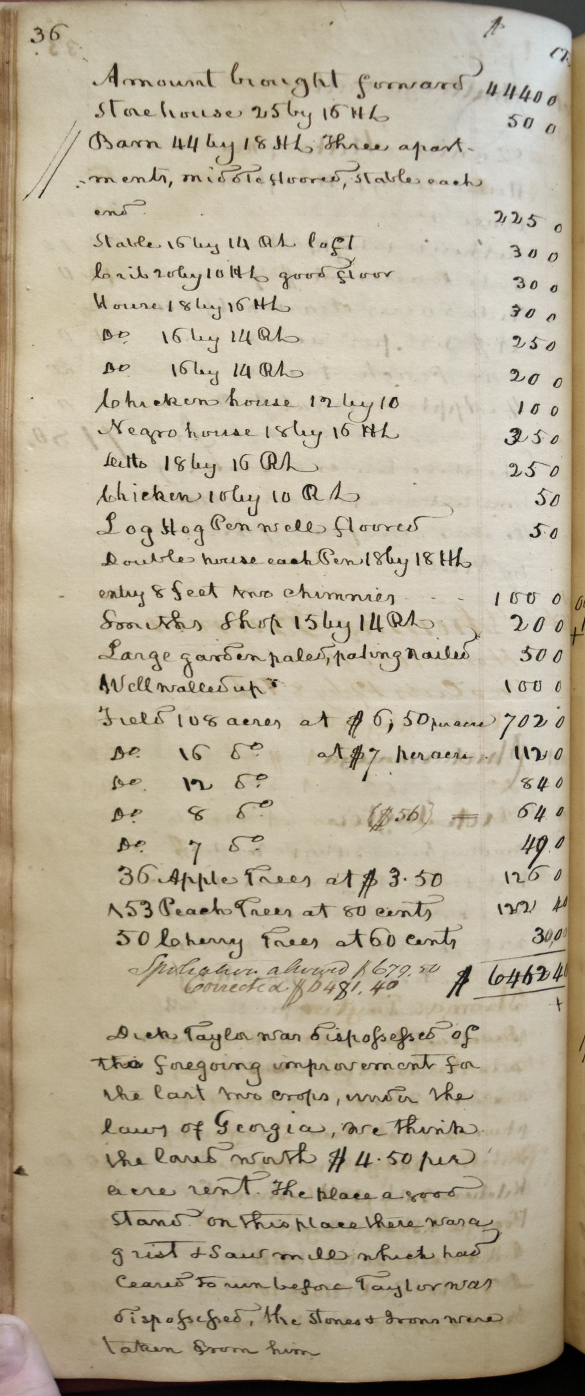 36
$ cts
Amount brought forward 4440 0
Storehouse 25 by 16 HL 50 0
Barn 44 by 18 HL Three apart-
ments, middle floored, stable each
end 225 0
Stable 16 by 14 RL loft 30 0
Crib 20 by 10 HL good floor 30 0
House 18 by 16 HL 30 0
Do 16 by 14 RL 25 0
Do 16 by 14 RL 20 0
Chicken house 12 by 10 10 0
Negro house 18 by 16 HL 35 0
Ditto 18 by 16 RL 25 0
Chicken 10 by 10 RL 5 0
Log Hog Pen well floored 5 0
Double house each Pen 18 by 18 HL
entry 8 feet two chimnies 100 0
Smiths Shop 15 by 14 RL 20 0
Large garden paled, paling nailed 50 0
Well walled up 10 0
Field 108 acres at $6,50 per acre 702 0
Do. 16 do at $7 per acre 112 0
Do. 12 do 84 0
Do. 8 do ($56) 64 0
Do. 7 do 49 0
36 Apple Trees at $3.50 126 0
153 Peach Trees at 80 cents 122 40
50 Cherry Trees at 60 cents 30 00
Spoliation allowed $679.50 $ 6462 40
Corrected $6481.40
Dick Taylor was dispossessed of
the foregoing improvement for
the last two crops, under the
laws of Georgia, we think
the land worth $4.50 per
acre rent. The place a good
stand. on this place there was a
grist & Saw mill which had
ceased to run before Taylor was
dispossessed, the stones & Irons were
taken from him